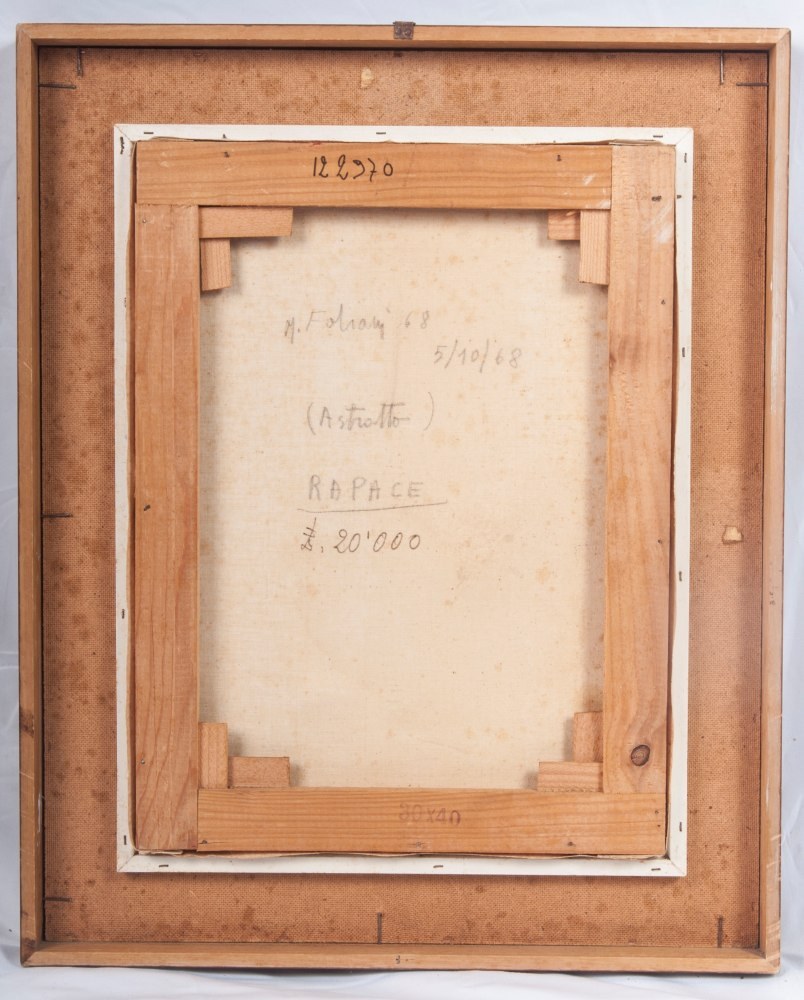 122970
68
5/10/68
(Astratto)
RAPACE
₤. 20'000
30x40